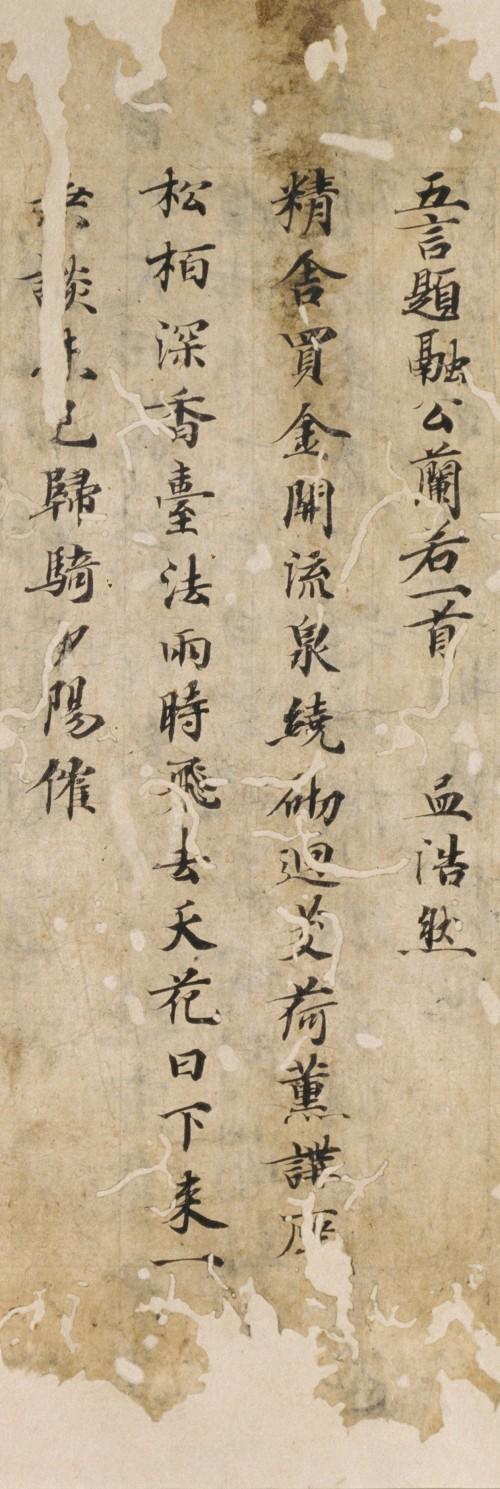 五言題融公蘭若一首 孟浩然
精舍買金開流泉繞砌迴芰荷薰講座
松栢深香臺法雨時飛去天花日下来一
談未已歸騎夕陽催